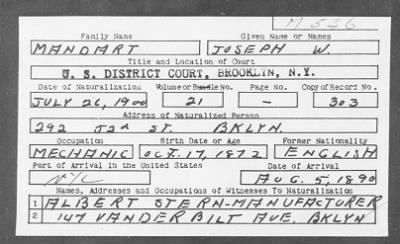 M 536
Family Name Given Name or Names
MANDART JOSEPH W.
Title and Location of Court
U. S. DISTRICT COURT, BROOKLYN, N.Y.
Date of Naturalization Volume or Bundle No. Page No. Copy of Record No.
JULY 26, 1900 21 - 303
Address of Naturalized Person
292 52d ST. BKLYN.
Occupation Birth Date or Age Former Nationality
MECHANIC OCT. 17, 1872 ENGLISH
Port of Arrival in the United States Date of Arrival
NYC AUG. 5, 1890
Names, Addresses and Occupations of Witnesses To Naturalization
1 ALBERT STERN-MANUFACTURER
2 147 VANDERBILT AVE. BKLYN